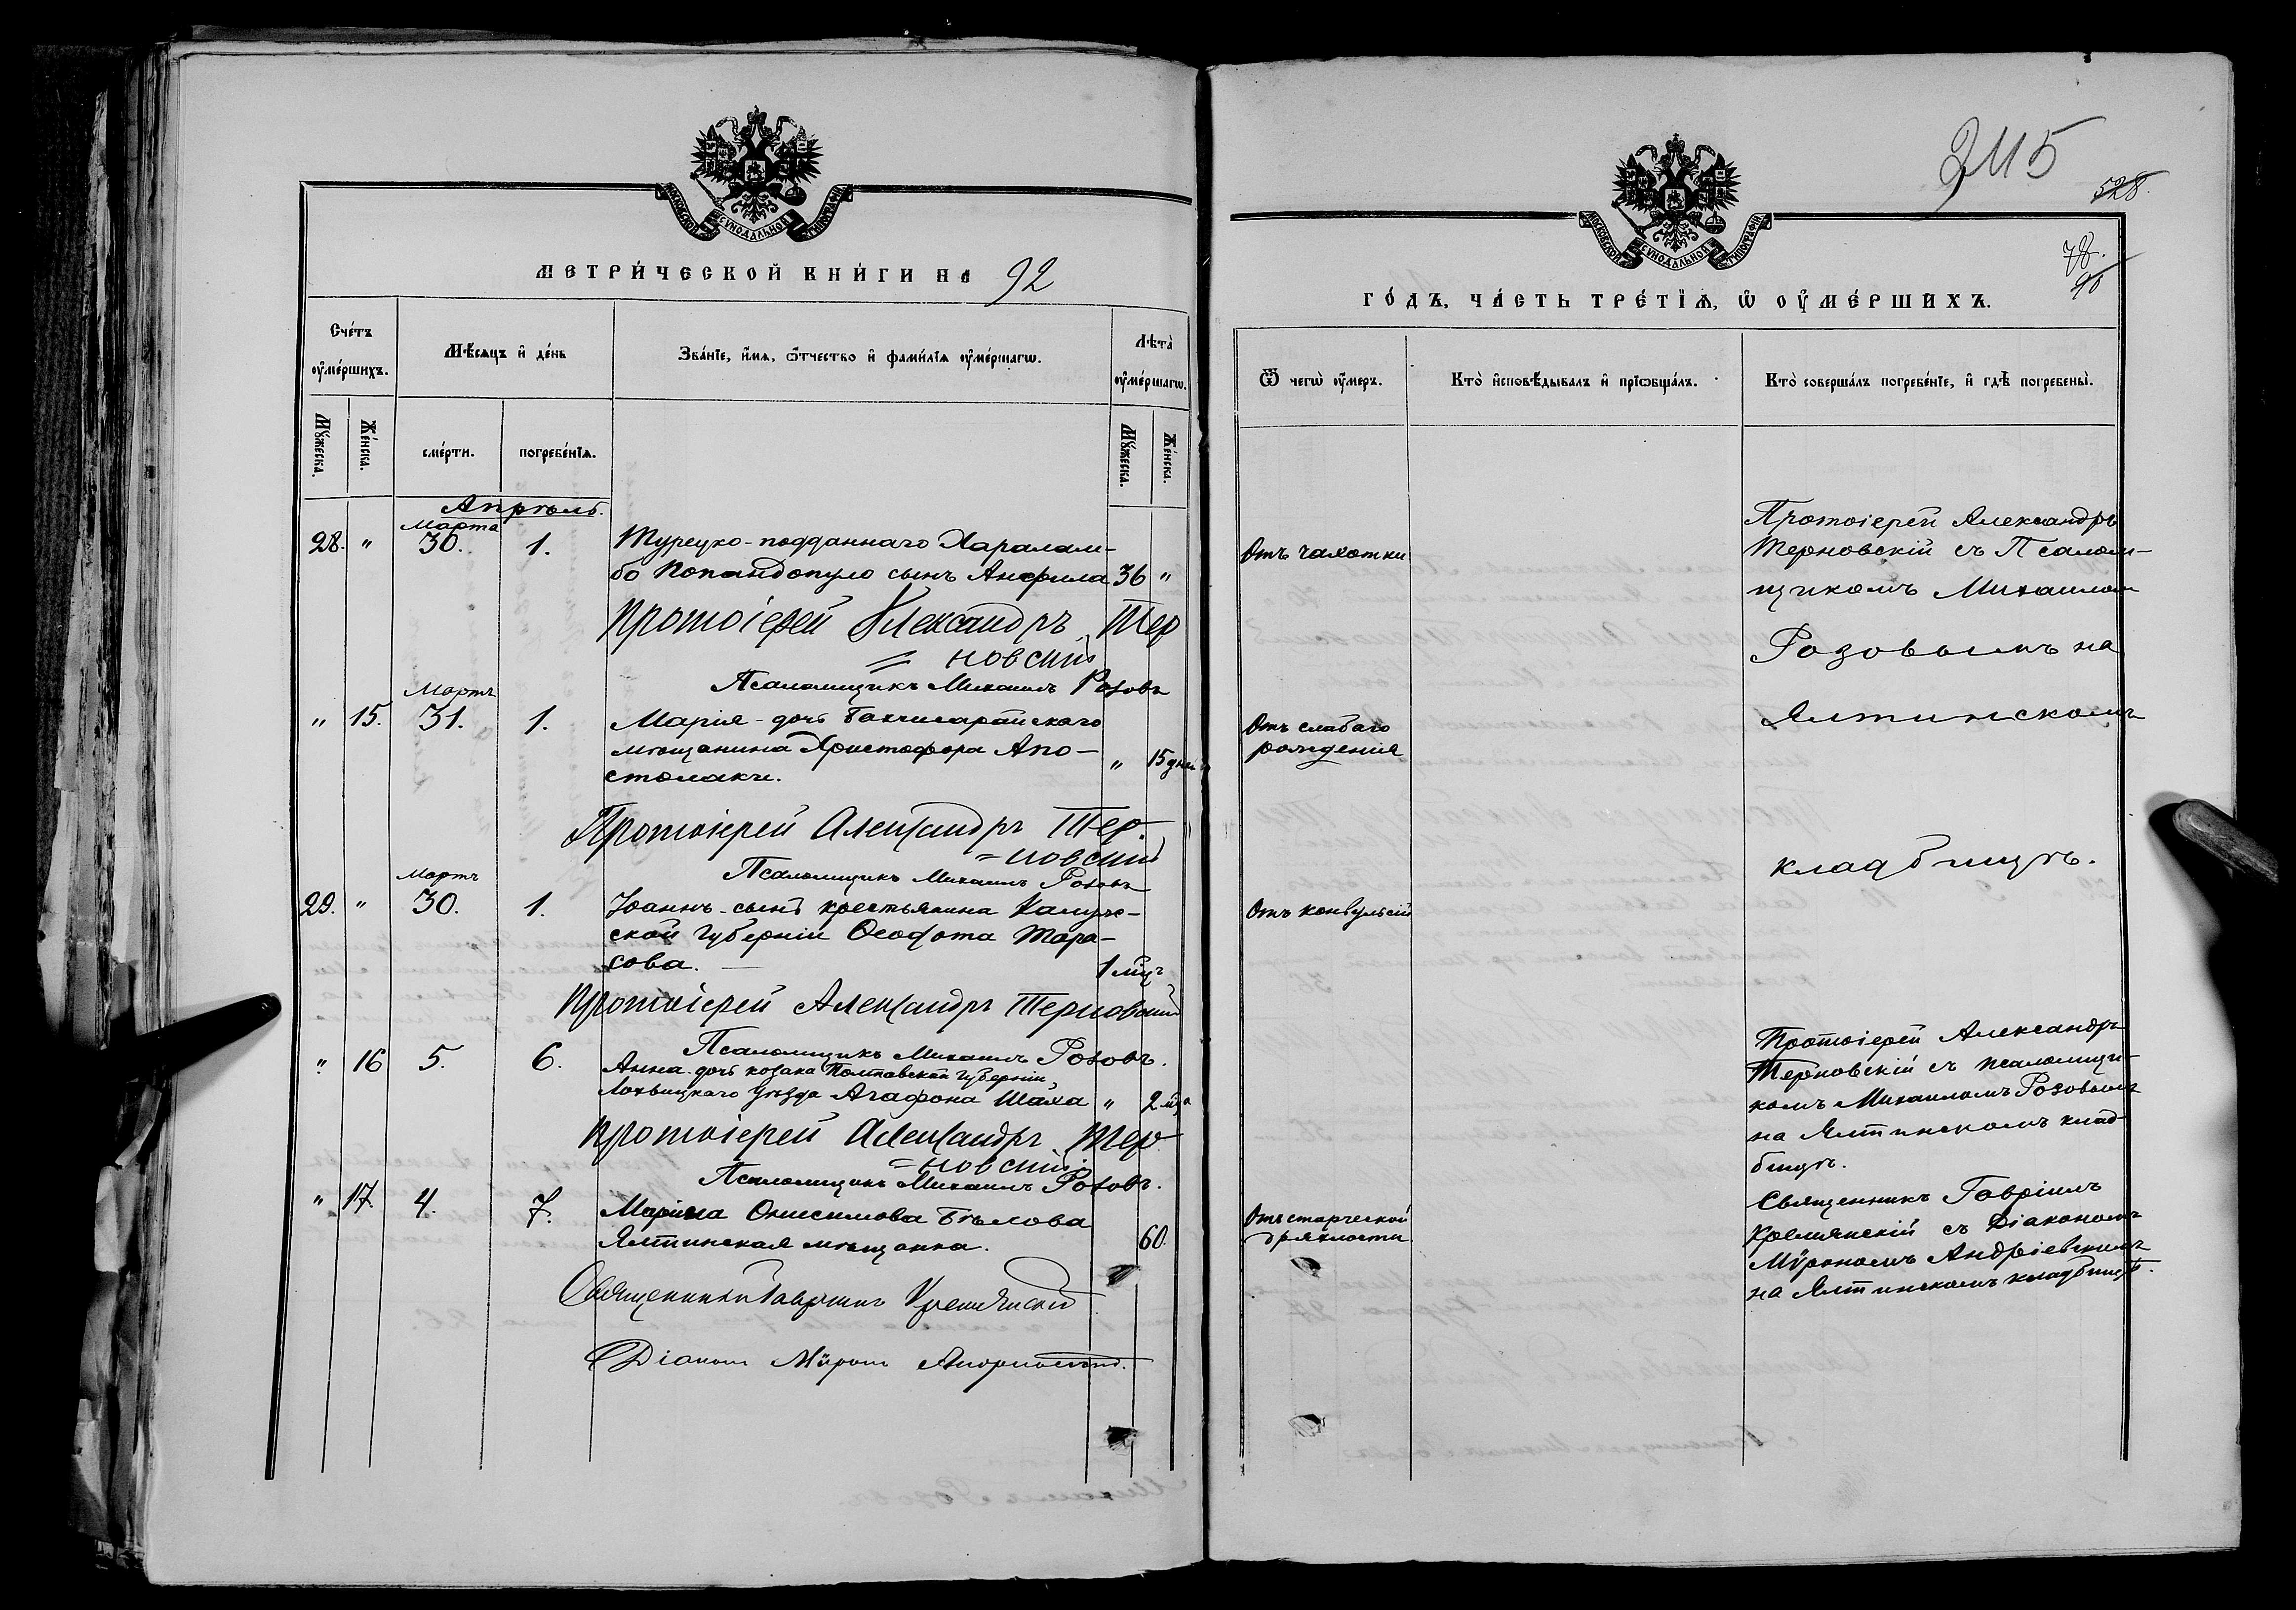 МОСКОВСКОЙ СѴНОДАЛЬНОЙ ТИПОГРАФІИ
МЕТРИ́ЧЕСКОЙ КНИ́ГИ НА 92
Сче́тъ оу҆ме́ршихъ.
Мѣ́сяцъ и҆ де́нь
Зва́нїе, и҆́мя, ѻ҆́тчество и҆ фами́лїя оу҆ме́ршагѡ.
Лѣта̀ оу҆ме́ршагѡ.
Мꙋ́жеска.
Же́нска.
сме́рти.
погребе́нїѧ.
Мꙋ́жеска.
Же́нска.
Апрѣль.
Марта
28. " 30. 1. Турецко-подданнаго Харалам-
бо Попандопуло сынъ Анфила 36 "
Протоіерей Александръ Тер
= новскій
Псаломщикъ Михаилъ Розовъ
Мартъ
" 15. 31. 1. Марія - дочь Бахчисарайскаго
мѣщанина Христофора Апо-
столаки. " 15 дней
Протоіерей Александръ Тер.
= новскій
Псаломщикъ Михаилъ Розовъ
Мартъ
29. " 30. 1. Іоаннъ - сынъ крестьянина Калуж-
ской губерніи Ѳеодота Тара-
сова. 1 мѣц
Протоіерей Александръ Терновскій
Псаломщикъ Михаилъ Розовъ.
" 16 5. 6. Анна - дочь козака Полтавской губерніи
Лохвицкаго уѣзда Агафона Шаха " 2 мца
Протоіерей Александръ Тер.
= новскій
Псаломщикъ Михаилъ Розовъ.
" 17. 4. 7. Марина Онисимова Бѣлова
Ялтинская мѣщанка. 60.
Священникъ Гавріилъ Кремянскій
Діаконъ Мѵронъ
345
528.
78.
МОСКОВСКОЙ СѴНОДАЛЬНОЙ ТИПОГРАФІИ
ГО́ДЪ, ЧА́СТЬ ТРЕ́ТЇѦ, Ѡ҆ ОУ҆МЕ́РШИХЪ.
Ѿ чегѡ̀ оу҆́меръ.
Кто̀ и҆сповѣ́дывалъ и҆ прїѡбща́лъ.
Кто̀ соверша́лъ погребе́нїе, и҆ гдѣ̀ погребены̀.
Отъ чахотки
Протоіерей Александръ
Терновскій съ Псалом-
щикомъ Михаиломъ
Розовымъ на
Отъ слабаго
рожденія
Ялтинскомъ
кладбищѣ.
Отъ конвульсій
Протоіерей Александръ
Терновскій съ псаломщи-
комъ Михаиломъ Розовымъ
на Ялтинскомъ клад-
бищѣ.
Отъ старческой
дряхлости
Священникъ Гавріилъ
Кремянскій съ Діакономъ
Мѵрономъ Андріевскимъ
на Ялтинскомъ кладбищѣ.